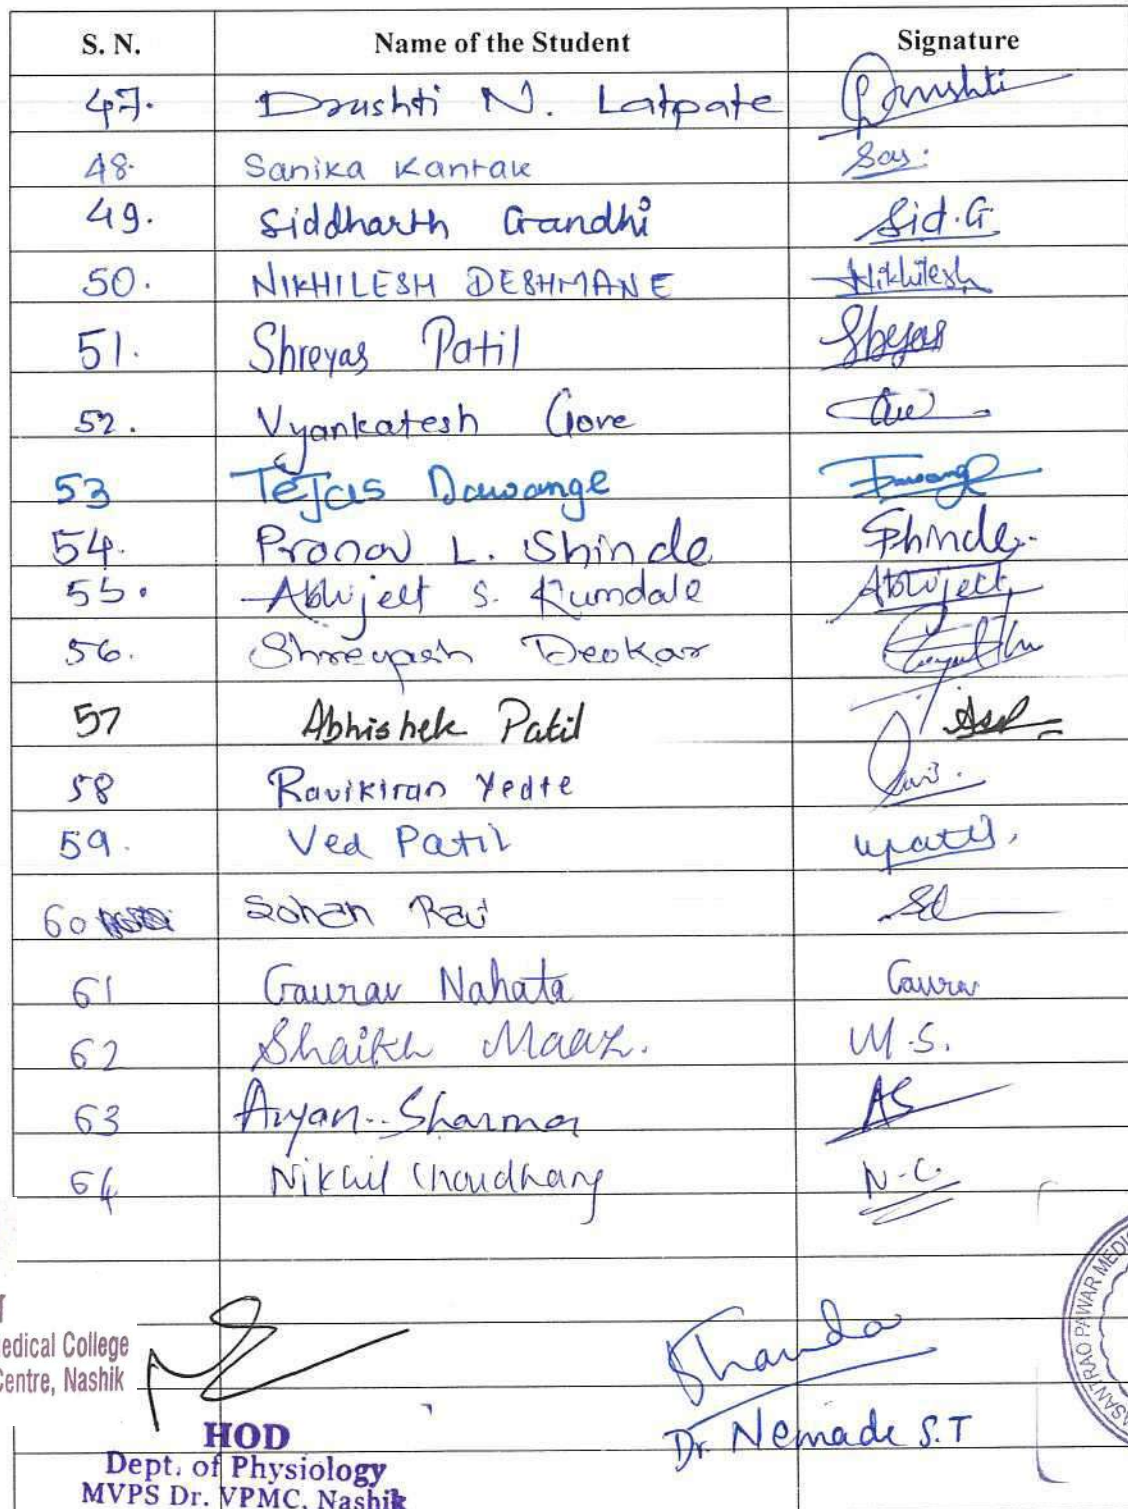 S. N. Name of the Student Signature
47. Drushti N. Latpate Drushti
48. Sanika Kantak
49. Siddharth Gandhi Sid.G
50. NIKHILESH DESHMANE Nikhilesh
51. Shreyas Patil Shreyas
52. Vyankatesh Gore
53 Tejas Dawange Dawange
54. Pranav L. Shinde Shinde.
55. Abhijeet S. Kumdale Abhijeet
56. Shreyash Deokar
57 Abhishek Patil
58 Ravikiran Yedte Ravi.
59. Ved Patil vpatil.
60 Sohan Rai
61 Gaurav Nahata Gaurav
62 Shaikh Maaz. M.S.
63 Aryan Sharma AS
64 Nikhil Choudhary N.C.
edical College
Centre, Nashik
HOD
Dept. of Physiology
MVPS Dr. VPMC, Nashik
Dr. Nemade S.T
ASANTRAO PAWAR MEDIC